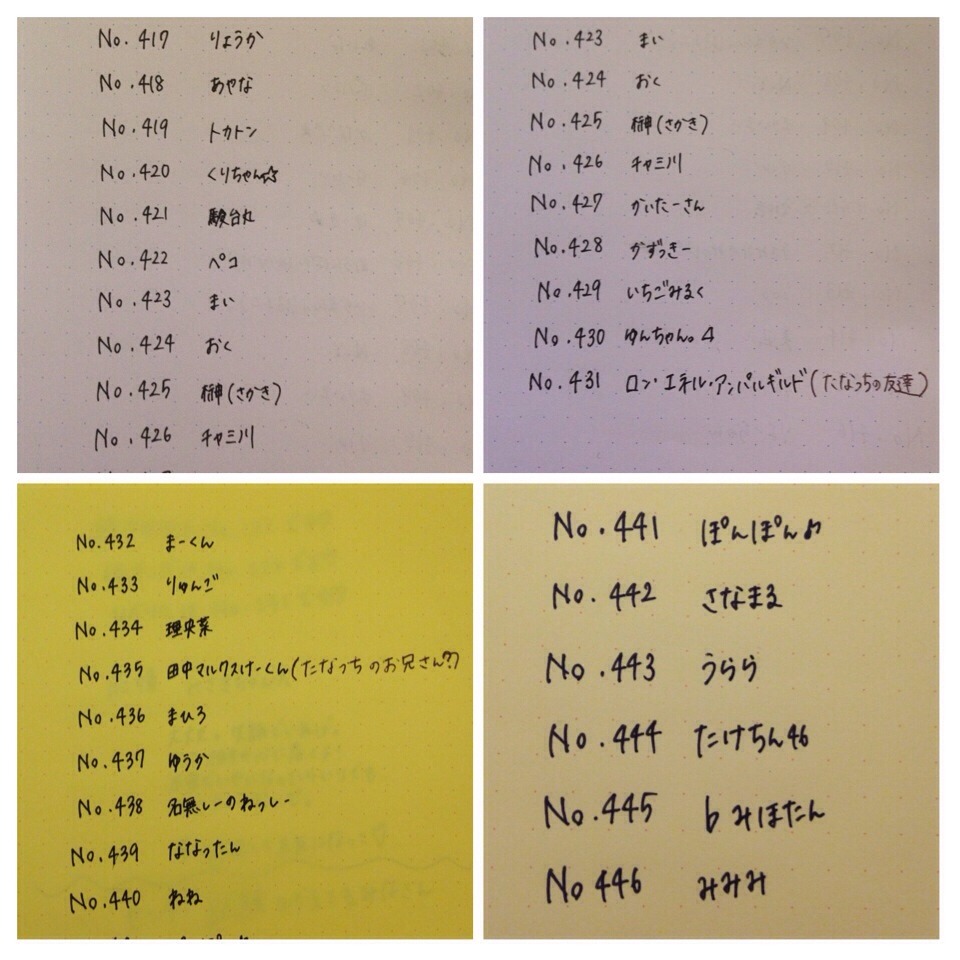 No.417 りょうか
No.418 あやな
No.419 トカトン
No.420 くりちゃん☆
No.421 駿台丸
No.422 ペコ
No.423 まい
No.424 おく
No.425 榊(さかき)
No.426 チャミ川
No.423 まい
No.424 おく
No.425 榊(さかき)
No.426 チャミ川
No.427 かいたーさん
No.428 かずっきー
No.429 いちごみるく
No.430 ゆんちゃん。4
No.431 ロン・エネル・アンパルギルド(たなっちの友達)
No.432 まーくん
No.433 りゅんご
No.434 理央菜
No.435 田中マルクスけーくん(たなっちのお兄さん??)
No.436 まひろ
No.437 ゆうか
No.438 名無しーのねっしー
No.439 ななったん
No.440 ねね
No.441 ぽんぽん♪
No.442 さなまる
No.443 うらら
No.444 たけちん46
No.445 b みほたん
No 446 みみみ